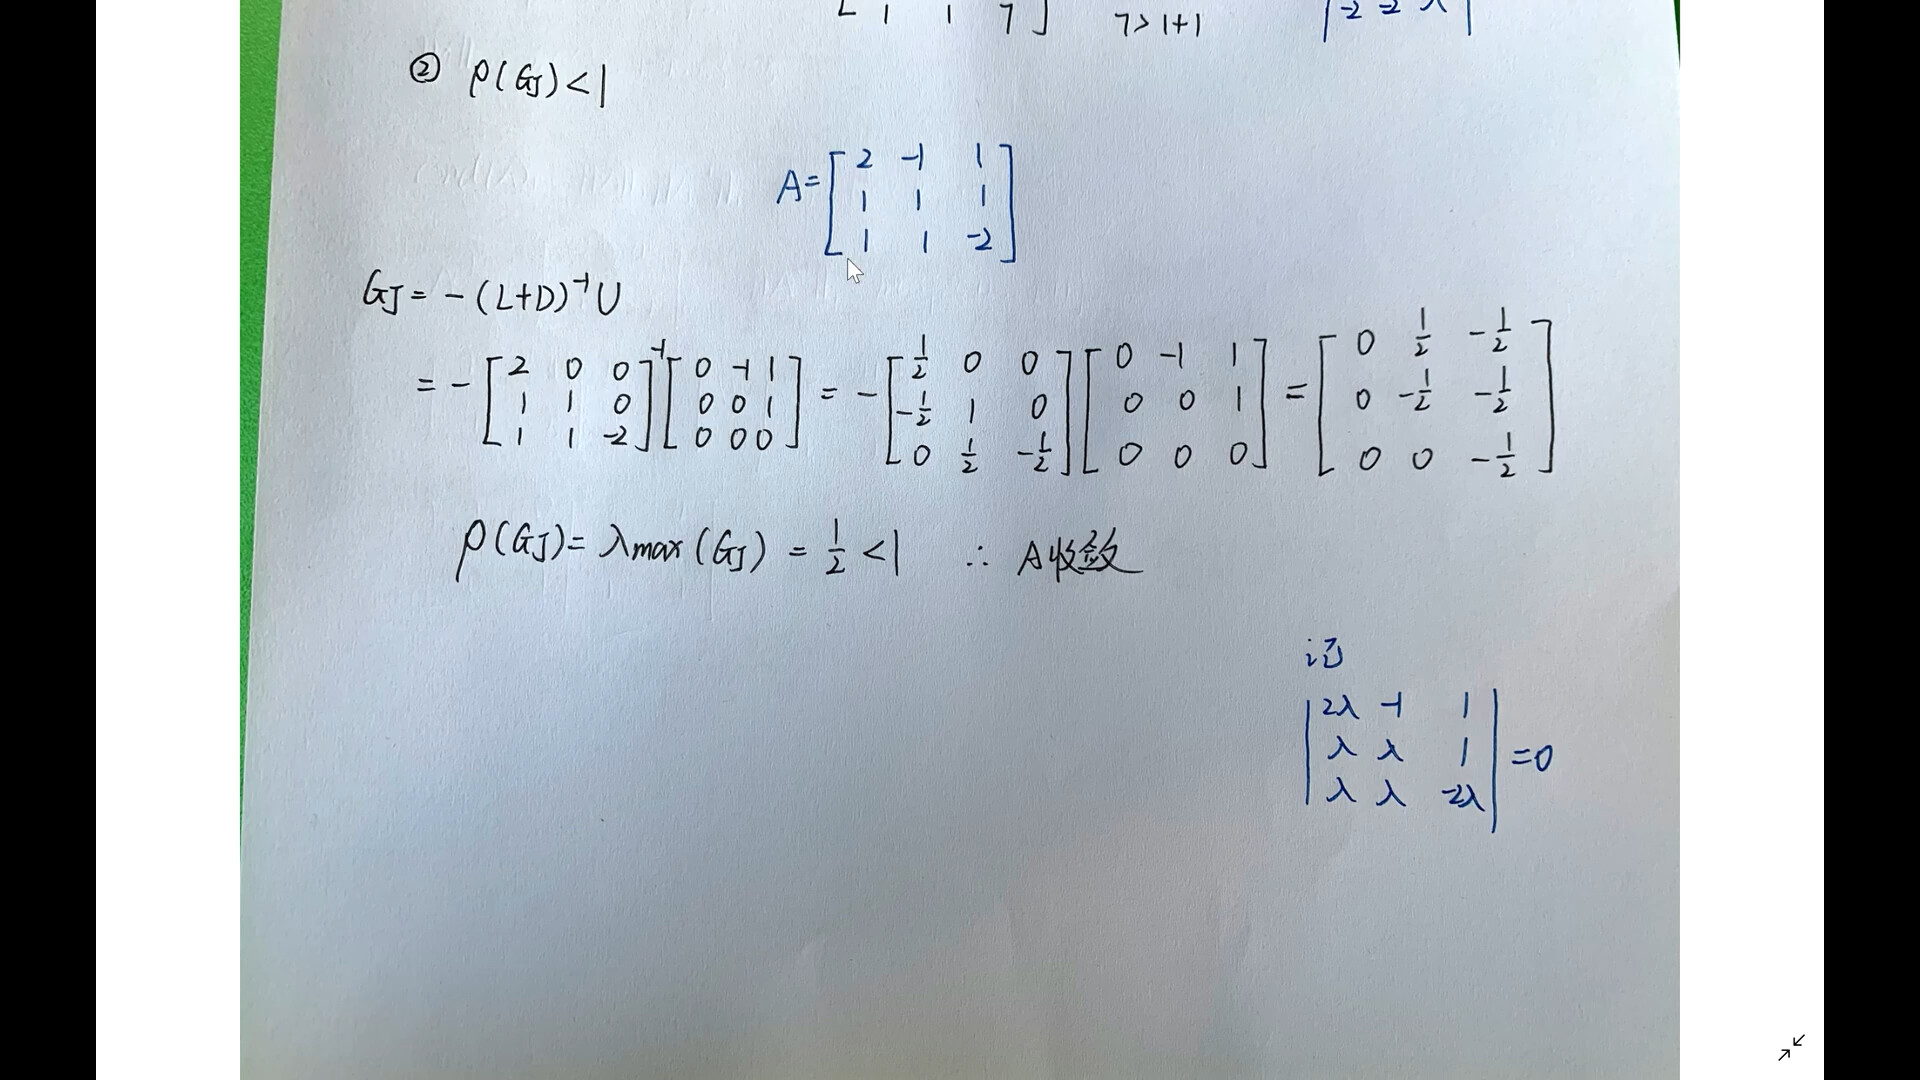 [ 1 1 7 ] 7>1+1 | -2 -2 λ |
② ρ(GJ)<1
A= [ 2 -1 1
1 1 1
1 1 -2 ]
GJ = -(L+D)⁻¹U
= - [ 2 0 0 ; 1 1 0 ; 1 1 -2 ]⁻¹ [ 0 -1 1 ; 0 0 1 ; 0 0 0 ] = - [ 1/2 0 0 ; -1/2 1 0 ; 0 1/2 -1/2 ] [ 0 -1 1 ; 0 0 1 ; 0 0 0 ] = [ 0 1/2 -1/2 ; 0 -1/2 -1/2 ; 0 0 -1/2 ]
ρ(GJ)= λmax(GJ) = 1/2 <1 ∴ A收敛
记
| 2λ -1 1 |
| λ λ 1 | =0
| λ λ -2λ |